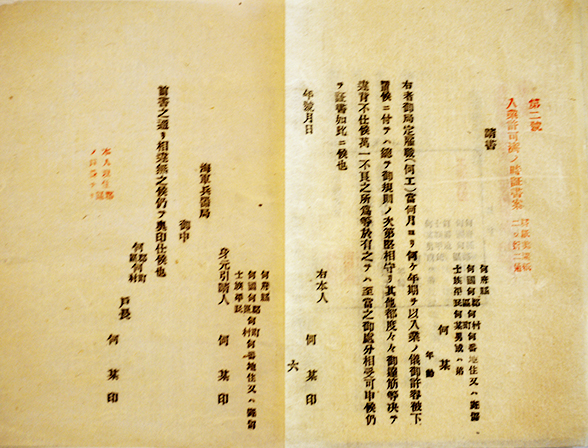 第二號
入業許可濟ノ時証書案
請書
何府縣
何國何郡何町村何番地住又ハ寄留
士族平民何某男或ハ弟
何某
年齡
右者御局定雇職(何工)當何月ヨリ何ケ年期ヲ以入業ノ儀御許容被下
難有奉
請候ニ付テハ總テ御規則ノ次第堅相守リ其他都度々々御達筋等决テ
違背不仕候萬一不良之所爲等於有之テハ至當之御處分相受可申候仍
テ証書如此ニ候也
年號月日
右本人 何某印
六
何府縣
何國何郡何町村何番地住又ハ寄留
士族平民
身元引請人 何某印
海軍兵器局
御中
前書之通リ相違無之候仍テ奥印仕候也
何郡何町
戸長 何某印